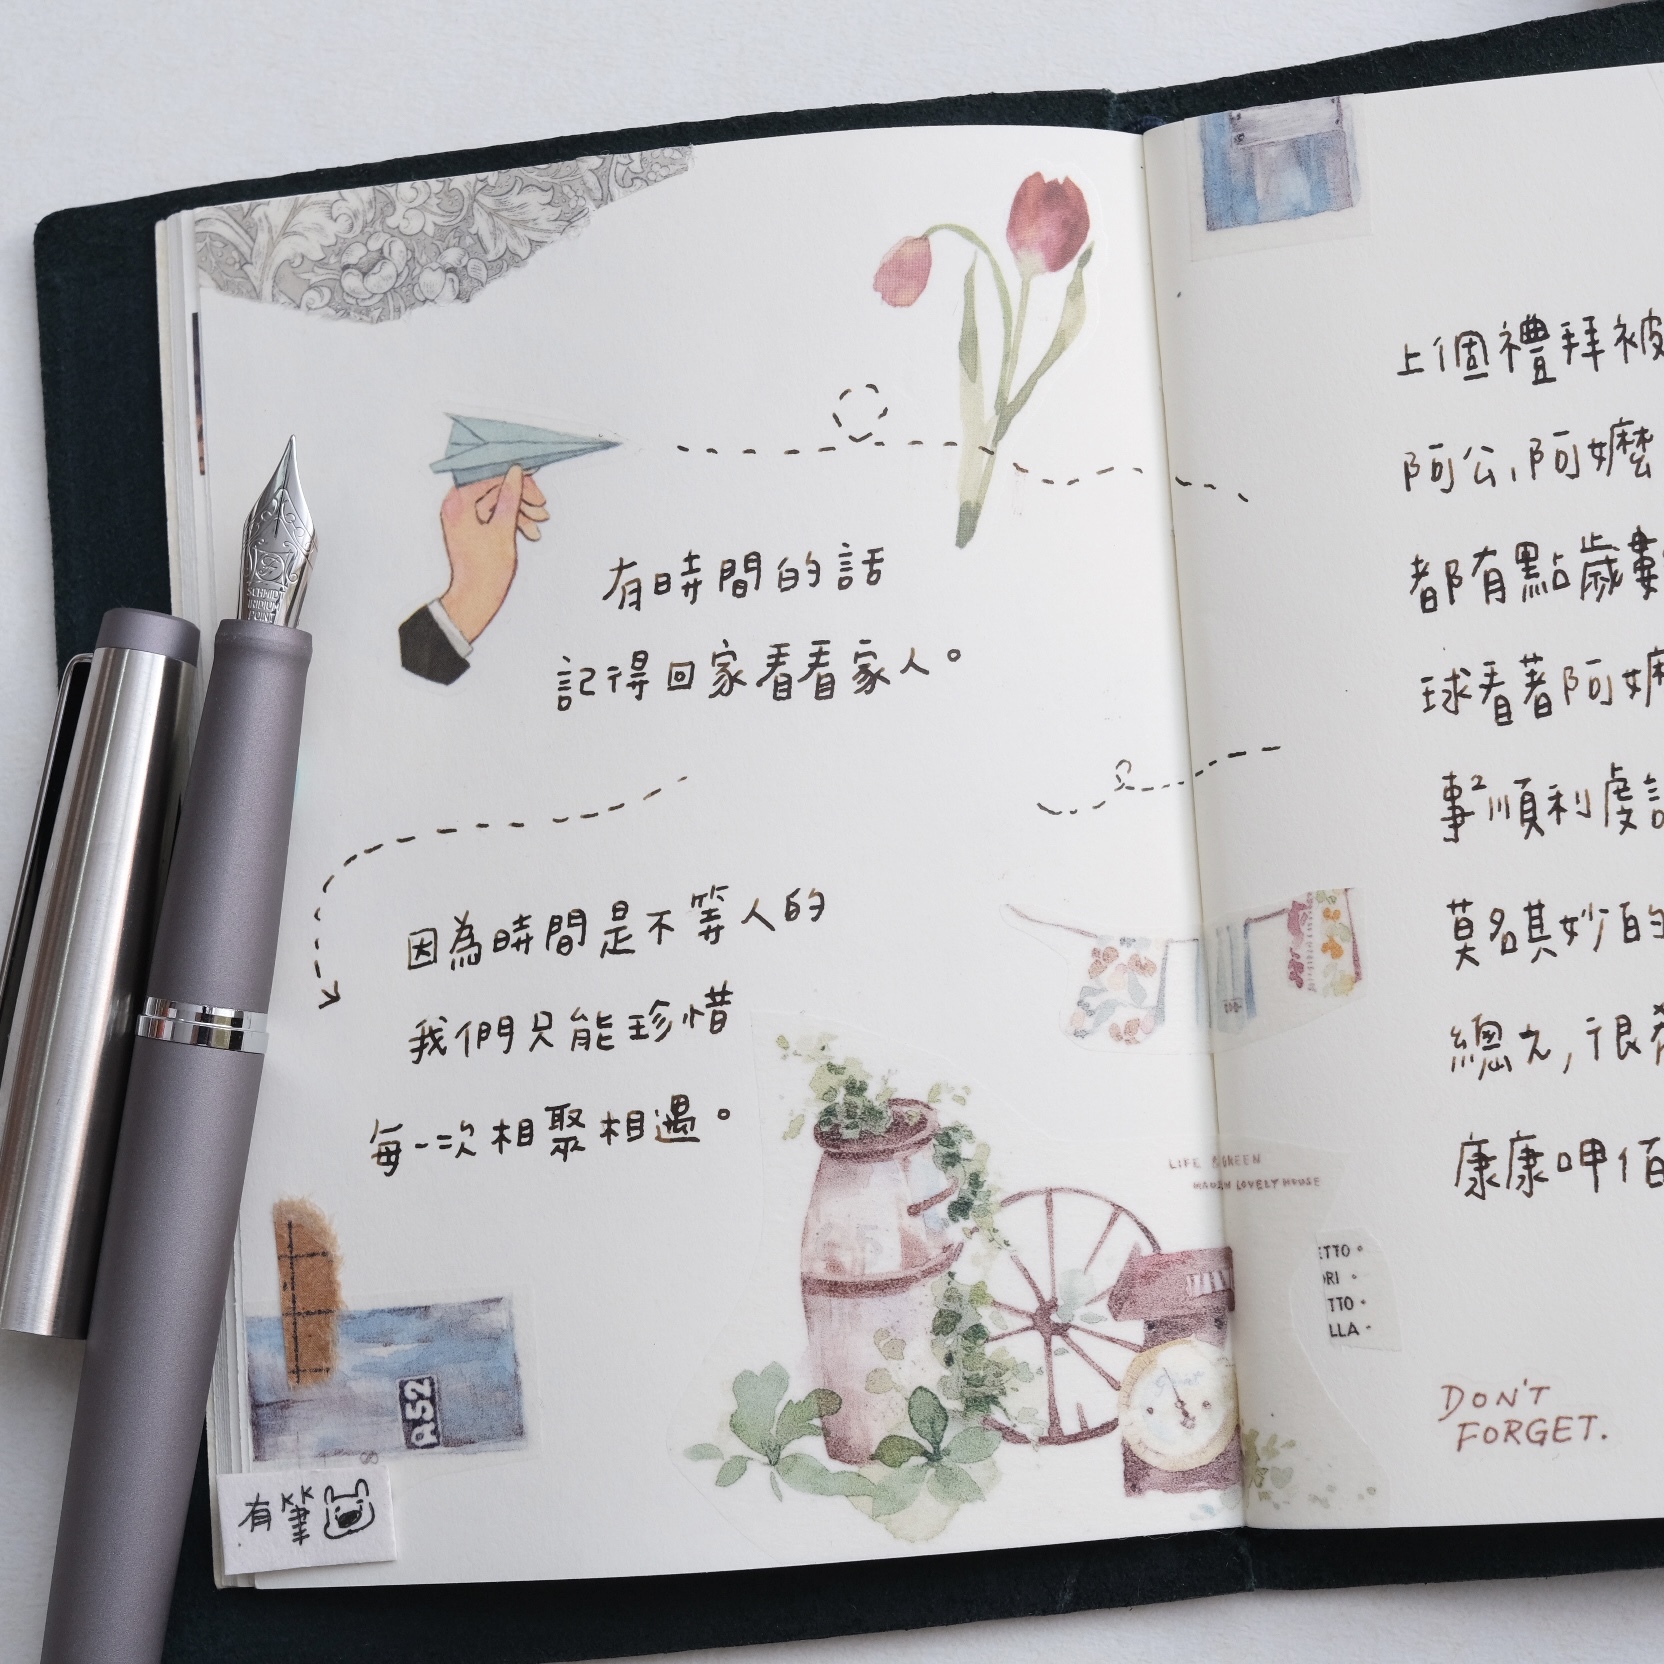 有時間的話
記得回家看看家人。
因為時間是不等人的
我們只能珍惜
每一次相聚相遇。
A52
有筆
SCHMIDT
IRIDIUM
POINT
上個禮拜被
阿公,阿嬤
都有點歲數
球看著阿嬤
事事順利度
莫名其妙的
總之,很希
康康呷佰
LIFE & GREEN
LOVELY HOUSE
ETTO
ORI
TTO
LLA
DON'T
FORGET.